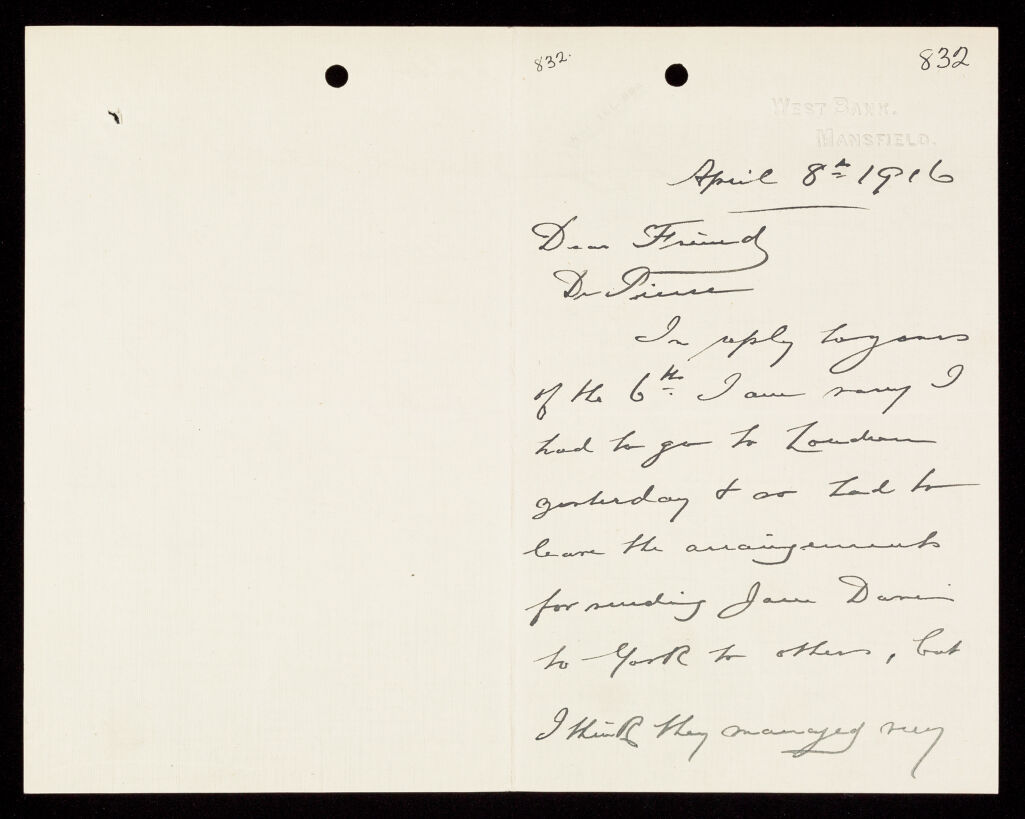 832.
832
WEST BANK.
MANSFIELD.
April 8th 1916
Dear Friend
Dr Pierce
In reply to yours
of the 6th. I am sorry I
had to go to London
yesterday & so had to
leave the arraingements
for sending Jane Davis
to York to others, but
I think they managed very